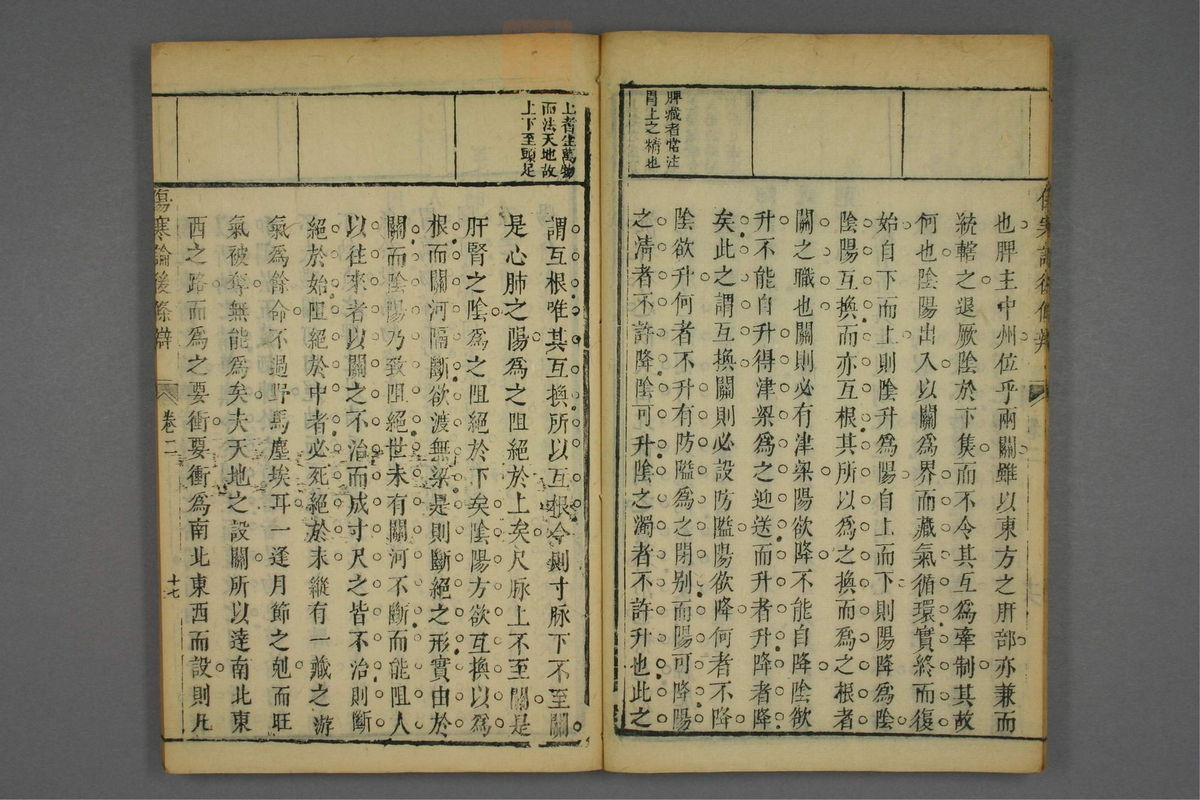 脾藏者常注
胃上之精也
也脾主中州位乎兩關雖以東方之肝部亦兼而
統轄之退厥陰於下隻而不令其互爲牽制其故
何也陰陽出入以關爲界而藏氣循環實終而復
始自下而上則陰升爲陽自上而下則陽降爲陰
陰陽互換而亦互根其所以爲之換而爲之根者
關之職也關則必有津梁陽欲降不能自降陰欲
升不能自升得津梁爲之迎送而升者升降者降
矣此之謂互換關則必設防隘陽欲降何者不降
陰欲升何者不升有防隘爲之閉别而陽可降陽
之凊者不許降陰可升陰之濁者不許升也此之
上者生萬物
而法天地故
上下至頭足
謂互根唯其互換所以互根今則寸脉下不至關
是心肺之陽爲之阻絕於上矣尺脉上不至關是
肝腎之陰爲之阻絕於下矣陰陽方欲互換以爲
根而關河隔斷欲渡無梁是則斷絕之形實由於
關而陰陽乃致阻絕世未有關河不斷而能阻人
以往來者以關之不治而成寸尺之皆不治則斷
絕於始阻絕於中者必死絕於末縱有一藏之游
氣爲餘命不過野馬塵埃耳一逢月節之剋而旺
氣被奪無能爲矣夫天地之設關所以達南北東
西之路而爲之要衝要衝爲南北東西而設則凡
傷寒論後條辯
卷二
十七